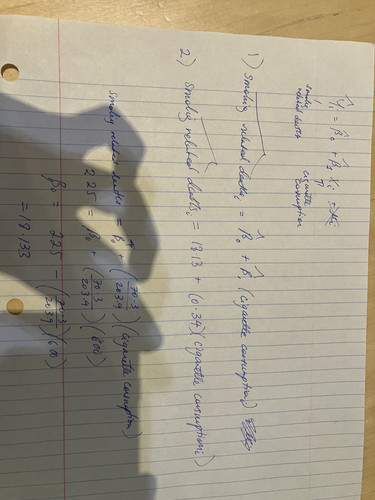 Ŷi = β̂0 + β̂1 Xi
smoking related deaths
cigarette consumption
1) smoking related deathsi = β̂0 + β̂1 (cigarette consumptioni)
2) smoking related deathsi = 18.13 + (0.34)(cigarette consumptioni)
smoking related deaths = β̂0 + (703/2039)(cigarette consumption)
225 = β0 + (703/2039)(600)
β0 = 225 − (703/2039)(600)
= 18.133